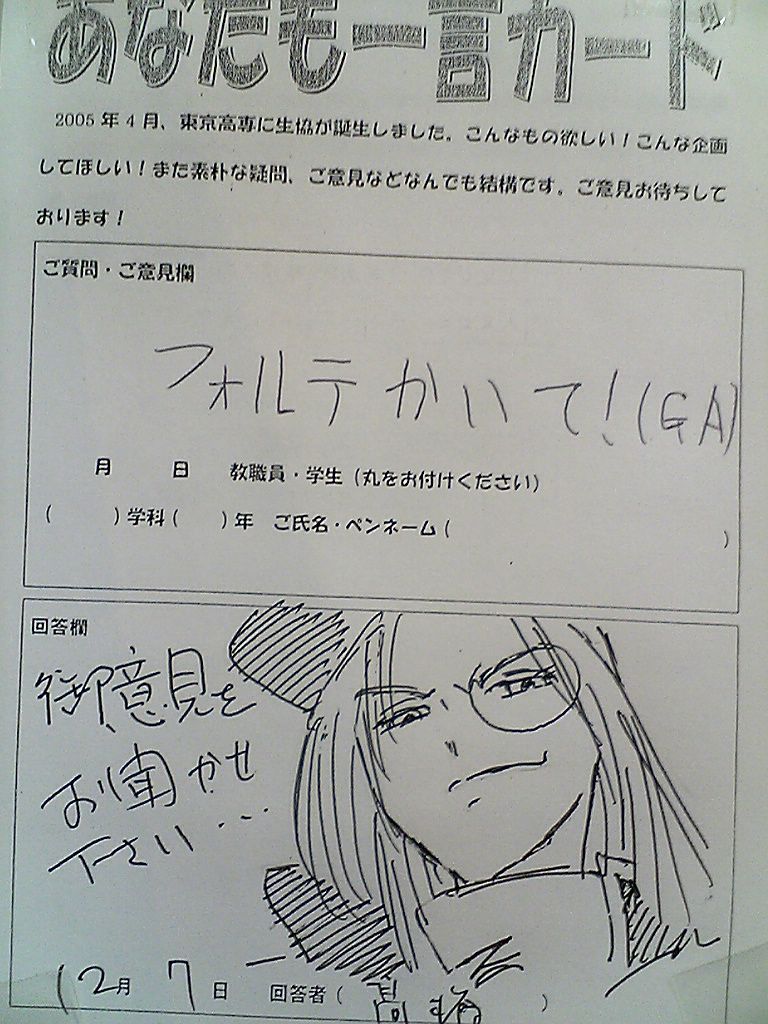 あなたも一言カード
2005年4月、東京高専に生協が誕生しました。こんなもの欲しい！こんな企画
してほしい！また素朴な疑問、ご意見などなんでも結構です。ご意見お待ちして
おります！
ご質問・ご意見欄
フォルテかいて!(GA)
月 日 教職員・学生（丸をお付けください）
( )学科( )年 ご氏名・ペンネーム( )
回答欄
御意見を
お聞かせ
下さい...
12月 7日 回答者( )